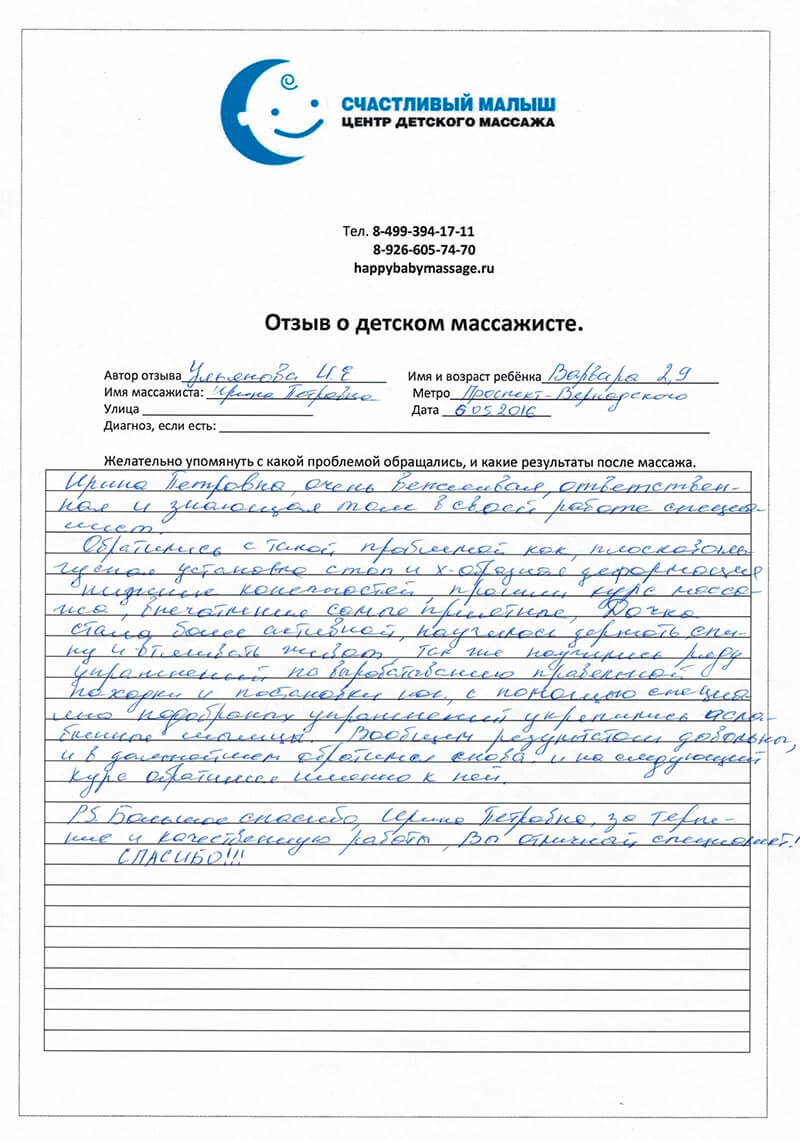 СЧАСТЛИВЫЙ МАЛЫШ
ЦЕНТР ДЕТСКОГО МАССАЖА
Тел. 8-499-394-17-11
8-926-605-74-70
happybabymassage.ru
Отзыв о детском массажисте.
Автор отзыва Ульянова И.Е Имя и возраст ребёнка Варвара 2,9
Имя массажиста: Ирина Петровна Метро Проспект-Вернадского
Улица Дата 6 05 2016
Диагноз, если есть:
Желательно упомянуть с какой проблемой обращались, и какие результаты после массажа.
Ирина Петровна, очень вежливая, ответствен-
ная и знающая толк в своей работе специа-
лист.
Обратились с такой проблемой как, плосковаль-
гусная установка стоп и х-образная деформация
нижних конечностей, прошли курс масса-
жа, впечатления самые приятные, Дочка
стала более активной, научилась держать спи-
ну и втягивать живот, так же научились ряду
упражнений по вырабатыванию правильной
походки и постановки ног, с помощью специа-
льно подобраных упражнений укрепились осла-
бленные мышцы. Вообщем результатом довольны,
и в дальнейшем обратимся снова и на следующий
курс обратимся именно к ней.
P.S. Большое спасибо, Ирина Петровна, за терпе-
ние и качественную работы, Вы отличный специалист!
СПАСИБО!!!